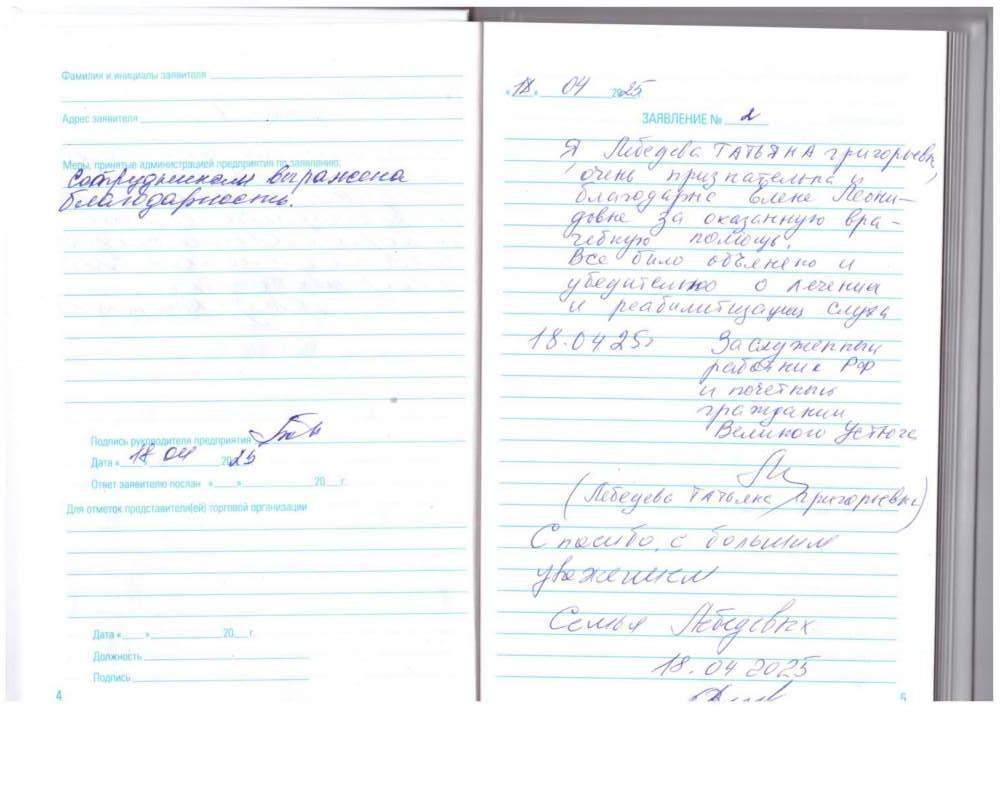 Фамилия и инициалы заявителя
Адрес заявителя
Меры, принятые администрацией предприятия по заявлению:
Сотрудникам выражена
благодарность.
Подпись руководителя предприятия
Дата «18 04 2025
Ответ заявителю послан «___» 20__ г.
Для отметок представителя(ей) торговой организации
Дата «___» 20__ г.
Должность
Подпись
4
«18» 04 2025
ЗАЯВЛЕНИЕ № 2
Я Лебедева ТАТЬЯНА григорьевна,
очень признательна и
благодарна Елене Леони-
довне за оказанную вра-
чебную помощь.
Все было объянено и
убедительно о лечении
и реабилитизации слуха
18.04 25г Заслуженный
работник РФ
и почетный
гражданин
Великого Устюга
(Лебедева ТАТЬЯНА Григорьевна)
Спасибо, с большим
уважением
Семья Лебедевых
18.04 2025
5